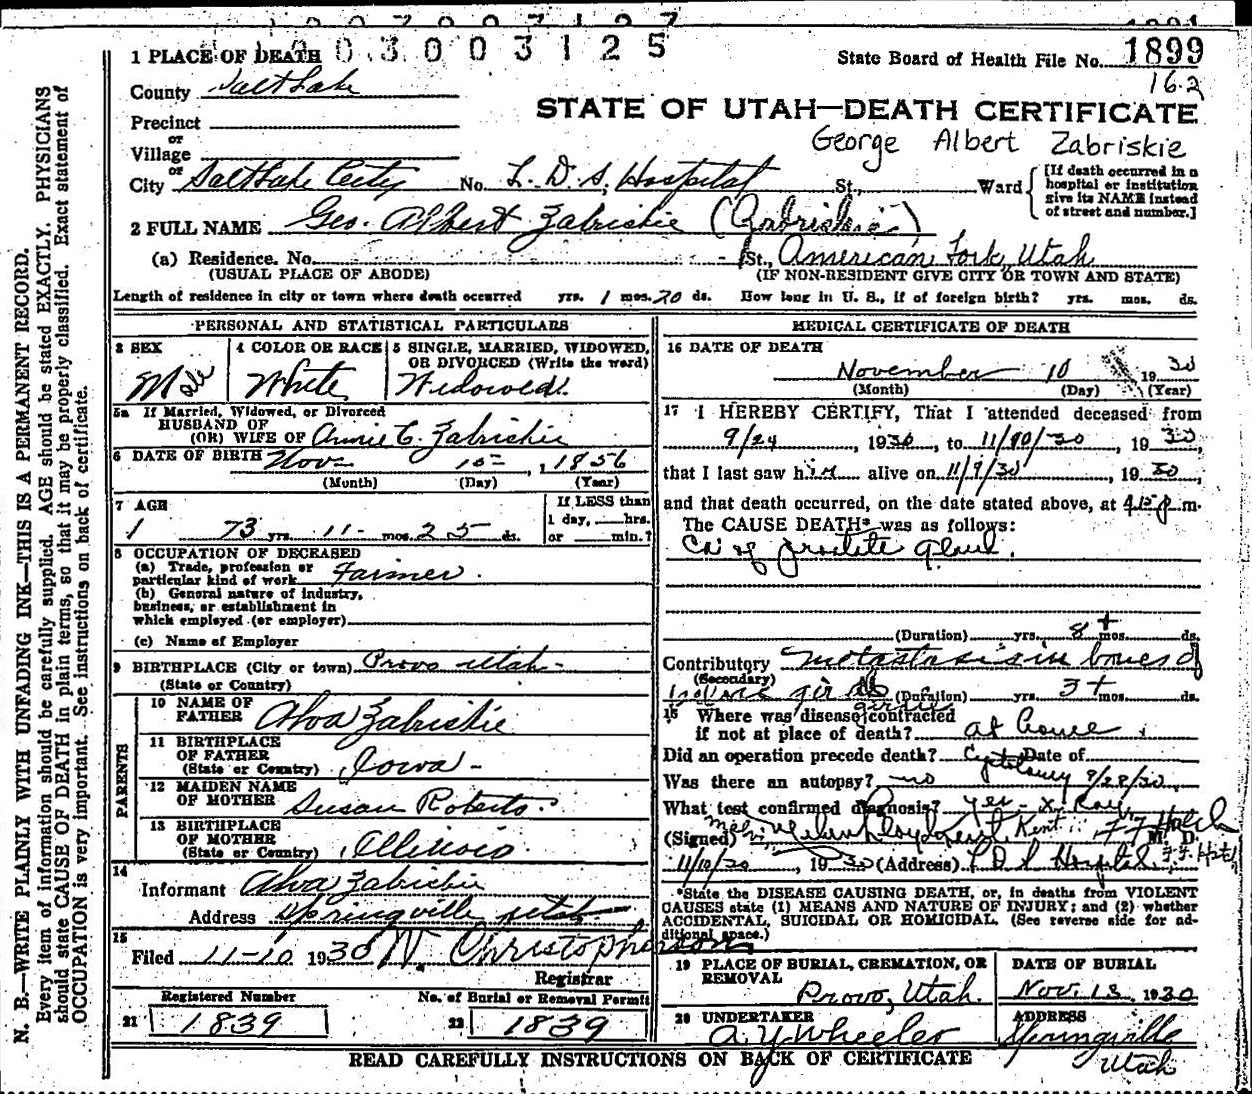 1 PLACE OF DEATH 003003125
State Board of Health File No. 1899
16.2
County Salt Lake
STATE OF UTAH—DEATH CERTIFICATE
Precinct
or
Village
George Albert Zabriskie
or
City Salt Lake City No. L. D. S. Hospital St., Ward
[If death occurred in a hospital or institution give its NAME instead of street and number.]
2 FULL NAME Geo. Albert Zabriskie (Zabriskie)
(a) Residence. No. St., American Fork, Utah
(USUAL PLACE OF ABODE) (IF NON-RESIDENT GIVE CITY OR TOWN AND STATE)
Length of residence in city or town where death occurred yrs. 1 mos. 20 ds. How long in U. S., if of foreign birth? yrs. mos. ds.
PERSONAL AND STATISTICAL PARTICULARS
3 SEX
Male
4 COLOR OR RACE
White
5 SINGLE, MARRIED, WIDOWED, OR DIVORCED (Write the word)
Widowed.
5a If Married, Widowed, or Divorced
HUSBAND OF
(OR) WIFE OF Annie C. Zabriskie
6 DATE OF BIRTH Nov 15 , 1856
(Month) (Day) (Year)
7 AGE
73 yrs. 11 mos. 25 ds.
If LESS than
1 day, hrs.
or min.?
8 OCCUPATION OF DECEASED
(a) Trade, profession or
particular kind of work Farmer.
(b) General nature of industry,
business, or establishment in
which employed (or employer)
(c) Name of Employer
9 BIRTHPLACE (City or town) Provo Utah-
(State or Country)
PARENTS
10 NAME OF
FATHER Alva Zabriskie
11 BIRTHPLACE
OF FATHER
(State or Country) Iowa -
12 MAIDEN NAME
OF MOTHER Susan Roberts.
13 BIRTHPLACE
OF MOTHER
(State or Country) Illinois
14
Informant Alva Zabriskie
Address Springville, Utah
15
Filed 11-10 1930 W. Christopherson
Registrar
Registered Number
21 1839
No. of Burial or Removal Permit
22 1839
MEDICAL CERTIFICATE OF DEATH
16 DATE OF DEATH
November 10 1930
(Month) (Day) (Year)
17 I HEREBY CERTIFY, That I attended deceased from
9/24, 1930, to 11/10/30, 1930,
that I last saw him alive on 11/9/30, 1930,
and that death occurred, on the date stated above, at 4:15 p m.
The CAUSE DEATH* was as follows:
Ca of prostate gland.
(Duration) yrs. 8+ mos. ds.
Contributory Metastasis in bones of
(Secondary)
(Duration) yrs. 3+ mos. ds.
girdle
18 Where was disease contracted
if not at place of death? at home
Did an operation precede death? Date of
Was there an autopsy? no 9/28/30
What test confirmed diagnosis? Yes - X Ray
(Signed) Kent M. D.
11/10/30, 1930 (Address) L D S Hospital
*State the DISEASE CAUSING DEATH, or, in deaths from VIOLENT
CAUSES state (1) MEANS AND NATURE OF INJURY; and (2) whether
ACCIDENTAL, SUICIDAL OR HOMICIDAL. (See reverse side for ad-
ditional space.)
19 PLACE OF BURIAL, CREMATION, OR
REMOVAL
Provo, Utah.
DATE OF BURIAL
Nov. 13 1930
20 UNDERTAKER
A. Y. Wheeler
ADDRESS
Springville
Utah
READ CAREFULLY INSTRUCTIONS ON BACK OF CERTIFICATE
N. B.—WRITE PLAINLY WITH UNFADING INK—THIS IS A PERMANENT RECORD.
Every item of information should be carefully supplied. AGE should be stated EXACTLY. PHYSICIANS
should state CAUSE OF DEATH in plain terms, so that it may be properly classified. Exact statement of
OCCUPATION is very important. See instructions on back of certificate.